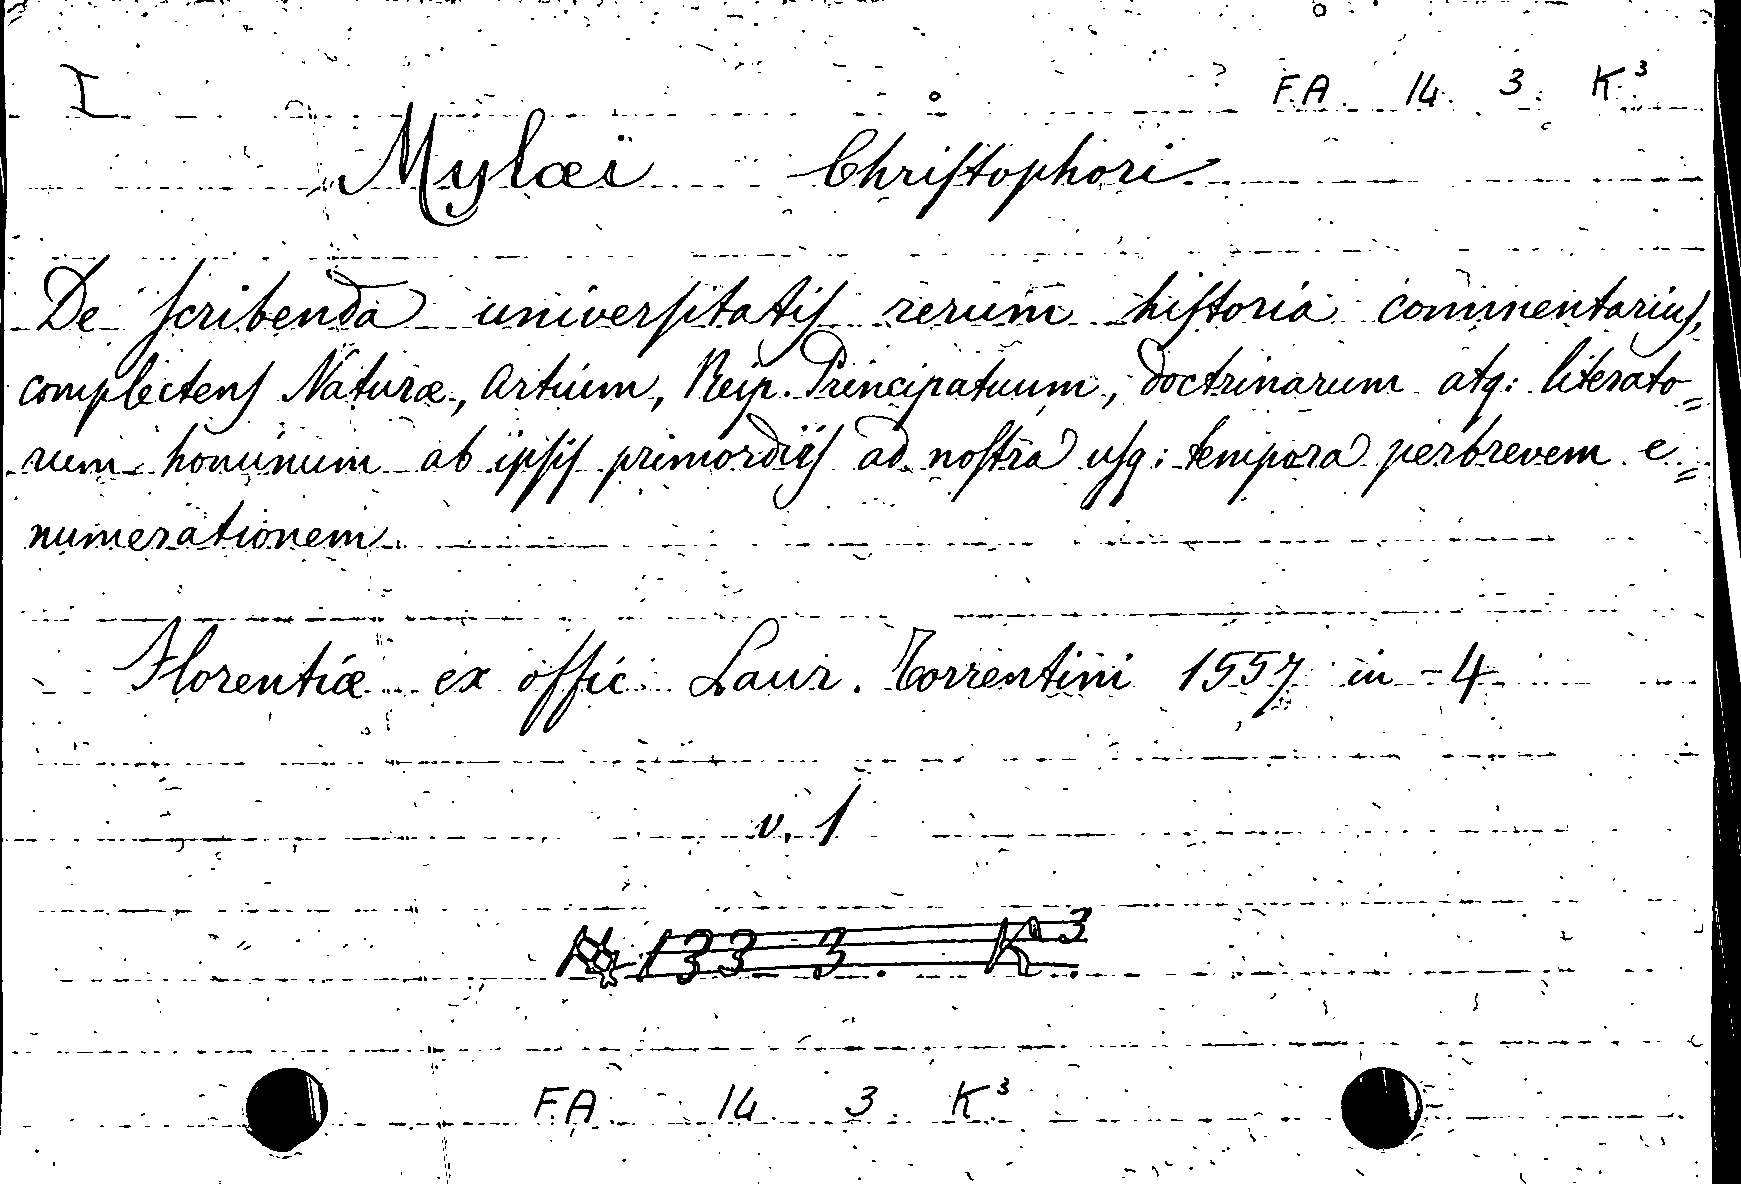 I FA. 14. 3. K³
Mylæi Chriſtophori
De ſcribenda univerſitatiſ rerum hiſtoria commentariuſ,
complectenſ Naturæ, Artium, Reip. Principatuum, doctrinarum atq: literato=
rum hominum ab ipſiſ primordiiſ ad noſtra uſq: tempora perbrevem e=
numerationem.
Florentiæ ex offic. Laur. Torrentini 1557 in-4
v. 1
133 3. K³.
FA. 14. 3. K³